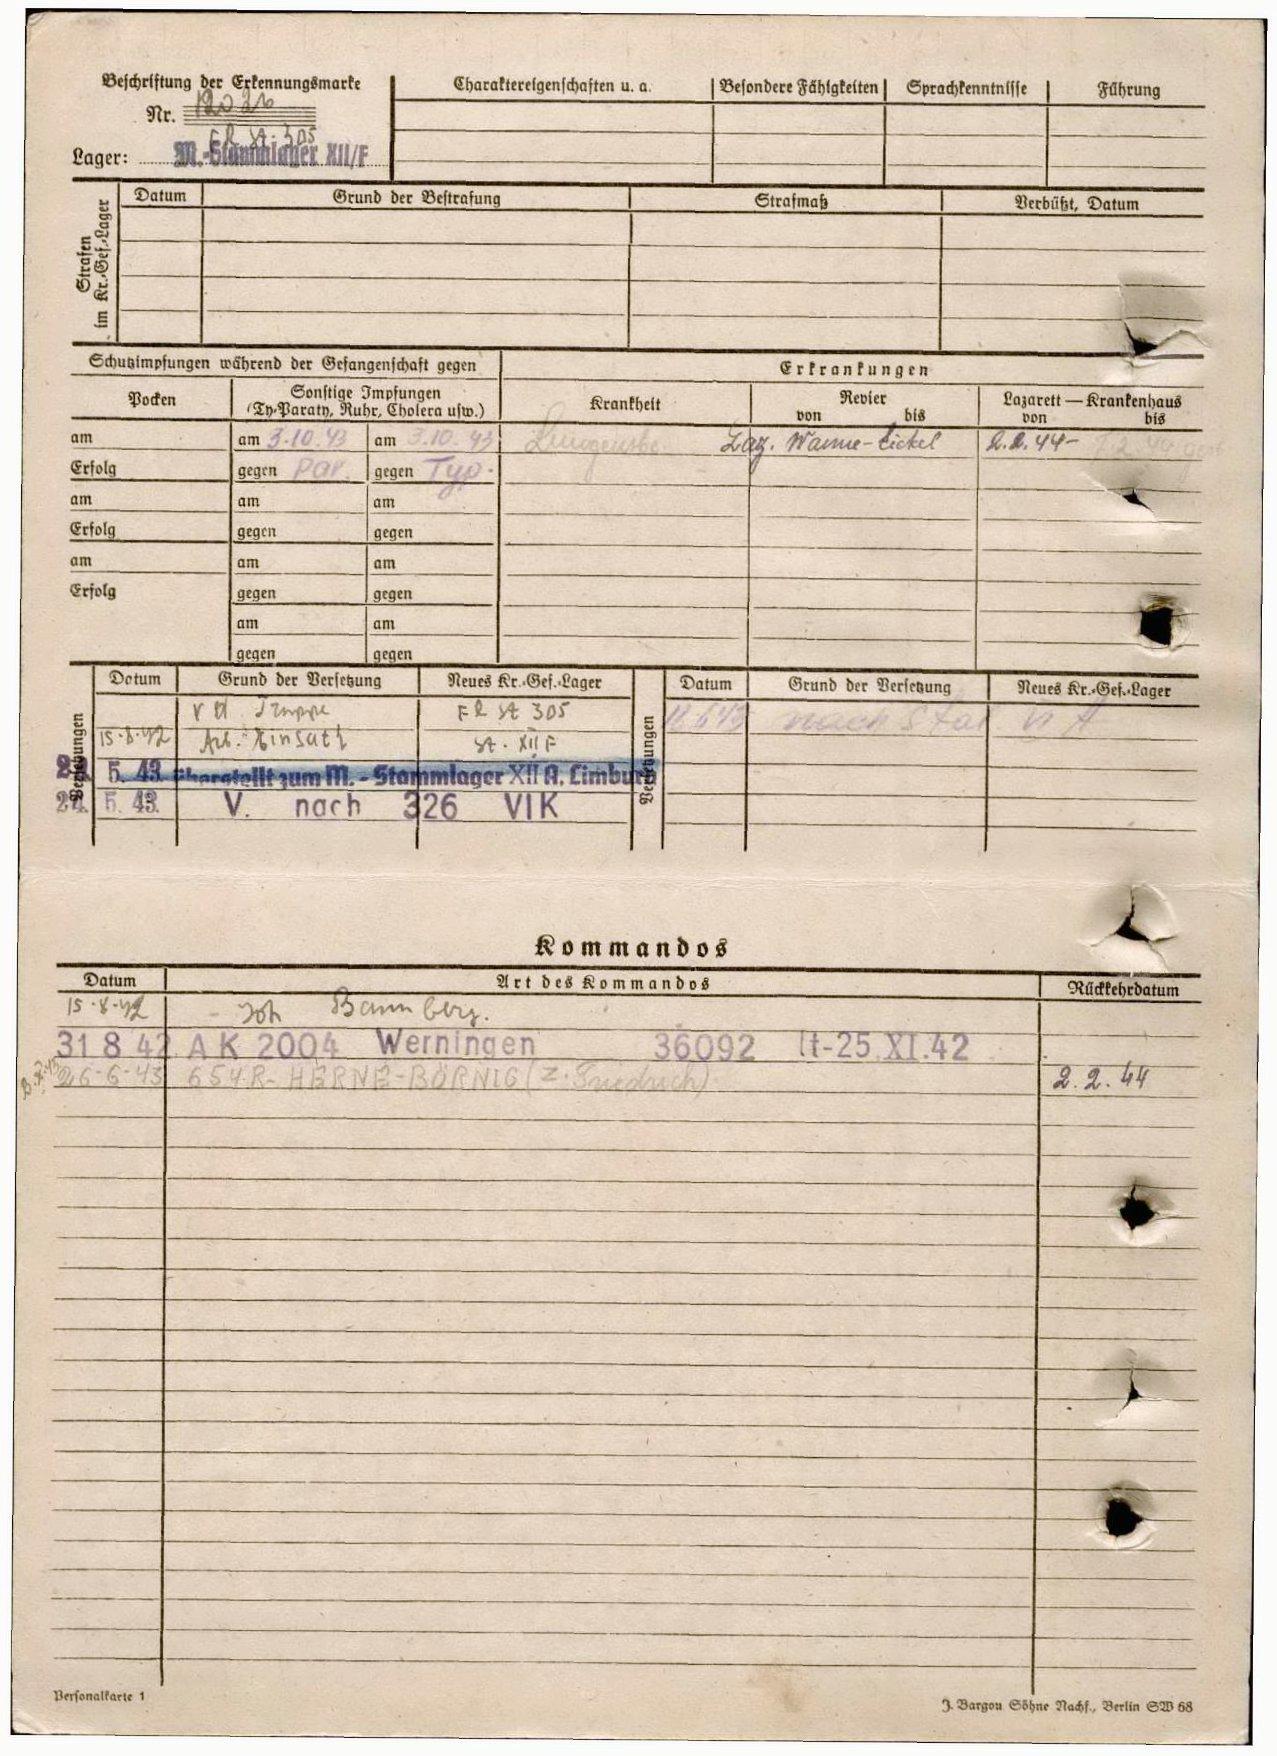 Beschriftung der Erkennungsmarke
Nr. 12026
FR St. 305
Lager: M.-Stammlager XII/F
Charaktereigenschaften u. a.
Besondere Fähigkeiten
Sprachkenntnisse
Führung
Strafen im Kr.-Gef.-Lager
Datum
Grund der Bestrafung
Strafmaß
Verbüßt, Datum
Schutzimpfungen während der Gefangenschaft gegen
Erkrankungen
Pocken
Sonstige Impfungen
(Ty-Paraty, Ruhr, Cholera usw.)
Krankheit
Revier
von bis
Lazarett — Krankenhaus
von bis
am am 3.10.43 am 3.10.43 Laz. Wanne-Eickel 2.2.44-
Erfolg gegen Par. gegen Typ.
am am am
Erfolg gegen gegen
am am am
Erfolg gegen gegen
am am
gegen gegen
Versetzungen
Datum Grund der Versetzung Neues Kr.-Gef.-Lager
Truppe FR St 305
15.8.42 Arb. Einsatz St. XII F
5. 43. überstellt zum M.-Stammlager XII A. Limburg
24. 5. 43. V. nach 326 VI K
Versetzungen
Datum Grund der Versetzung Neues Kr.-Gef.-Lager
nach Stal VI A
Kommandos
Datum Art des Kommandos Rückkehrdatum
15.8.42 Bamberg.
31 8 42 A K 2004 Werningen 36092 lt-25.XI.42
26-6-43 654 R- HERNE-BÖRNIG (Z. Friedrich) 2.2.44
Personalkarte 1
J. Bargou Söhne Nachf., Berlin SW 68